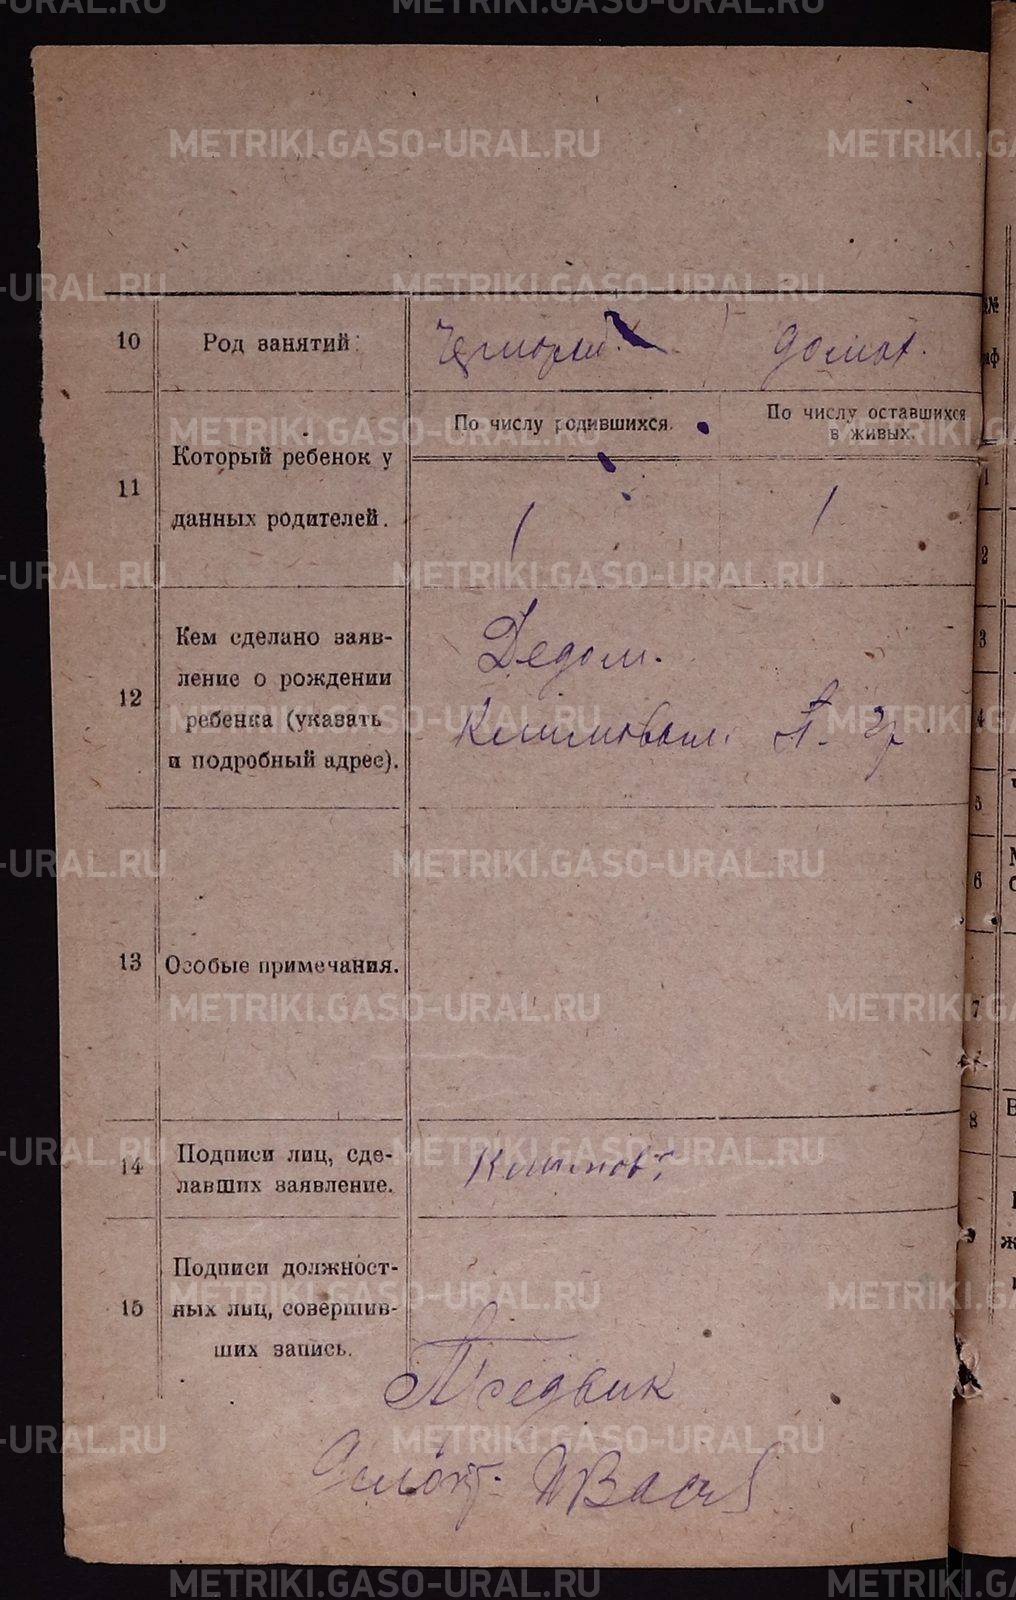 10 Род занятий: домох.
По числу родившихся. По числу оставшихся
в живых.
11 Который ребенок у
данных родителей.
1 1
12 Кем сделано заяв-
ление о рождении
ребенка (указать
и подробный адрес).
Дедом.
Климовым. А. Гр.
13 Особые примечания.
14 Подписи лиц, сде-
лавших заявление.
Климов
15 Подписи должност-
ных лиц, совершив-
ших запись.
№№
1
2
3
4
5
6
7
8
9
METRIKI.GASO-URAL.RU